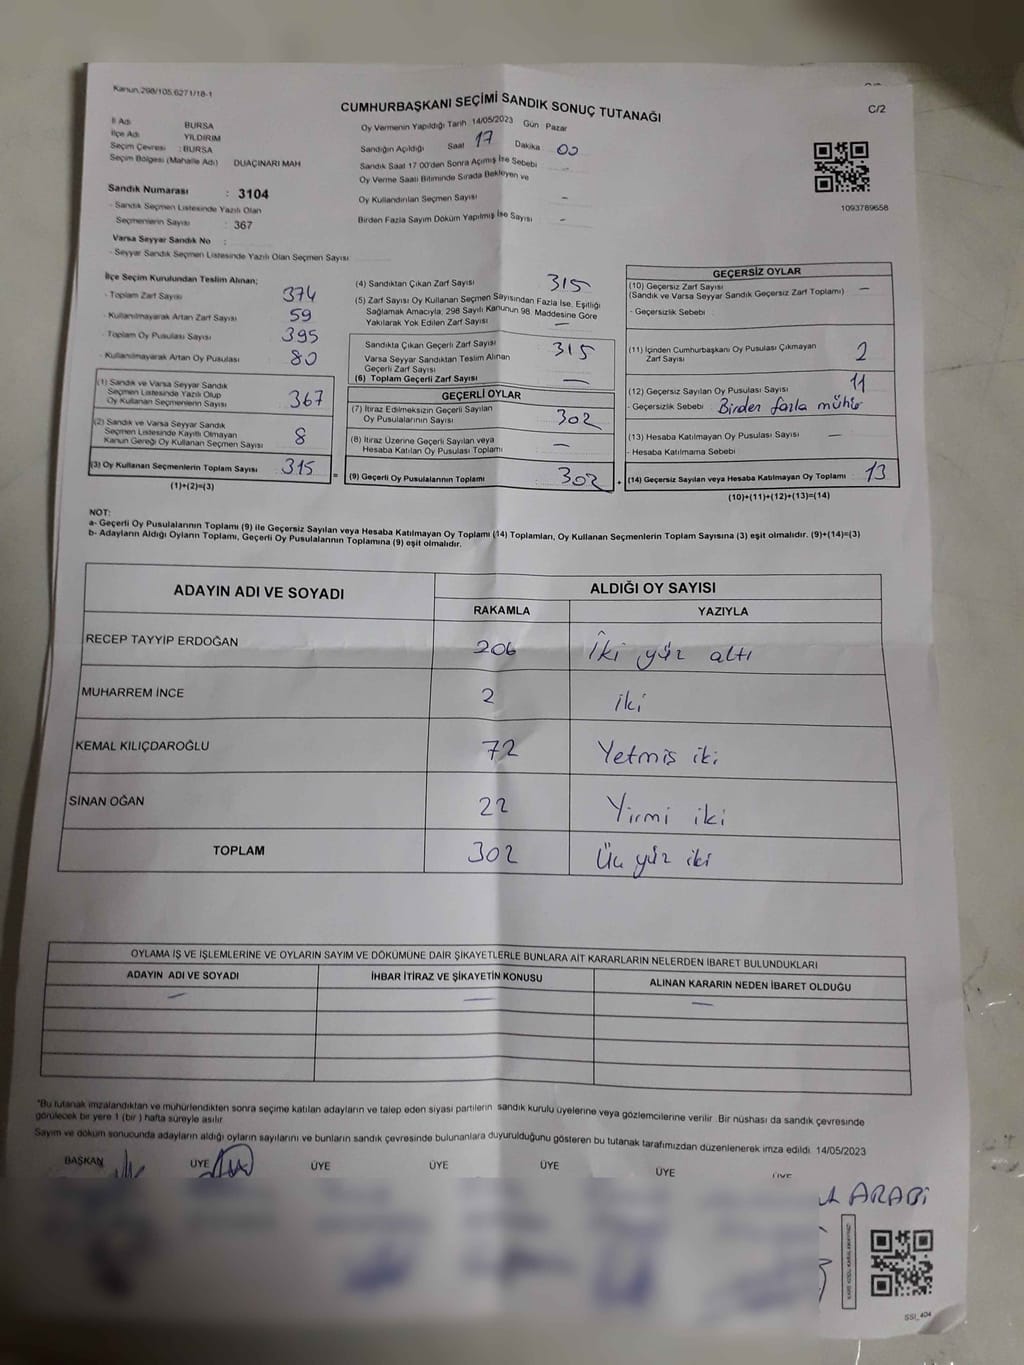 Kanun, 298/105,6271/18-1
C/2
CUMHURBAŞKANI SEÇİMİ SANDIK SONUÇ TUTANAĞI
İl Adı BURSA
İlçe Adı YILDIRIM
Seçim Çevresi : BURSA
Seçim Bölgesi (Mahalle Adı) DUAÇINARI MAH
Sandık Numarası : 3104
- Sandık Seçmen Listesinde Yazılı Olan
Seçmenlerin Sayısı : 367
Varsa Seyyar Sandık No :
- Seyyar Sandık Seçmen Listesinde Yazılı Olan Seçmen Sayısı
Oy Vermenin Yapıldığı Tarih 14/05/2023 Gün Pazar
Sandığın Açıldığı Saat 17 Dakika 00
Sandık Saat 17:00'den Sonra Açımış İse Sebebi –
Oy Verme Saati Bitiminde Sırada Bekleyen ve
Oy Kullandırılan Seçmen Sayısı –
Birden Fazla Sayım Döküm Yapılmış İse Sayısı –
1093789658
İlçe Seçim Kurulundan Teslim Alınan;
- Toplam Zarf Sayısı 374
- Kullanılmayarak Artan Zarf Sayısı 59
- Toplam Oy Pusulası Sayısı 395
- Kullanılmayarak Artan Oy Pusulası 80
(1) Sandık ve Varsa Seyyar Sandık
Seçmen Listesinde Yazılı Olup
Oy Kullanan Seçmenlerin Sayısı 367
(2) Sandık ve Varsa Seyyar Sandık
Seçmen Listesinde Kayıtlı Olmayan
Kanun Gereği Oy Kullanan Seçmen Sayısı 8
(3) Oy Kullanan Seçmenlerin Toplam Sayısı 315
(1)+(2)=(3)
(4) Sandıktan Çıkan Zarf Sayısı 315
(5) Zarf Sayısı Oy Kullanan Seçmen Sayısından Fazla İse, Eşitliği
Sağlamak Amacıyla, 298 Sayılı Kanunun 98. Maddesine Göre
Yakılarak Yok Edilen Zarf Sayısı –
Sandıkta Çıkan Geçerli Zarf Sayısı 315
Varsa Seyyar Sandıktan Teslim Alınan
Geçerli Zarf Sayısı
(6) Toplam Geçerli Zarf Sayısı –
GEÇERLİ OYLAR
(7) İtiraz Edilmeksizin Geçerli Sayılan
Oy Pusulalarının Sayısı 302
(8) İtiraz Üzerine Geçerli Sayılan veya
Hesaba Katılan Oy Pusulası Toplamı –
= (9) Geçerli Oy Pusulalarının Toplamı 302
GEÇERSİZ OYLAR
(10) Geçersiz Zarf Sayısı –
(Sandık ve Varsa Seyyar Sandık Geçersiz Zarf Toplamı)
- Geçersizlik Sebebi
(11) İçinden Cumhurbaşkanı Oy Pusulası Çıkmayan
Zarf Sayısı 2
(12) Geçersiz Sayılan Oy Pusulası Sayısı 11
- Geçersizlik Sebebi Birden fazla mühür
(13) Hesaba Katılmayan Oy Pusulası Sayısı –
- Hesaba Katılmama Sebebi
+ (14) Geçersiz Sayılan veya Hesaba Katılmayan Oy Toplamı 13
(10)+(11)+(12)+(13)=(14)
NOT:
a- Geçerli Oy Pusulalarının Toplamı (9) ile Geçersiz Sayılan veya Hesaba Katılmayan Oy Toplamı (14) Toplamları, Oy Kullanan Seçmenlerin Toplam Sayısına (3) eşit olmalıdır. (9)+(14)=(3)
b- Adayların Aldığı Oyların Toplamı, Geçerli Oy Pusulalarının Toplamına (9) eşit olmalıdır.
ADAYIN ADI VE SOYADI ALDIĞI OY SAYISI
RAKAMLA YAZIYLA
RECEP TAYYİP ERDOĞAN 206 İki yüz altı
MUHARREM İNCE 2 iki
KEMAL KILIÇDAROĞLU 72 Yetmiş iki
SİNAN OĞAN 22 Yirmi iki
TOPLAM 302 Üç yüz iki
OYLAMA İŞ VE İŞLEMLERİNE VE OYLARIN SAYIM VE DÖKÜMÜNE DAİR ŞİKAYETLERLE BUNLARA AİT KARARLARIN NELERDEN İBARET BULUNDUKLARI
ADAYIN ADI VE SOYADI İHBAR İTİRAZ VE ŞİKAYETİN KONUSU ALINAN KARARIN NEDEN İBARET OLDUĞU
– – –
*Bu tutanak imzalandıktan ve mühürlendikten sonra seçime katılan adayların ve talep eden siyasi partilerin sandık kurulu üyelerine veya gözlemcilerine verilir. Bir nüshası da sandık çevresinde
görülecek bir yere 1 (bir) hafta süreyle asılır
Sayım ve döküm sonucunda adayların aldığı oyların sayılarını ve bunların sandık çevresinde bulunanlara duyurulduğunu gösteren bu tutanak tarafımızdan düzenlenerek imza edildi. 14/05/2023
BAŞKAN ÜYE ÜYE ÜYE ÜYE ÜYE ÜYE
ARABİ
SSI_404